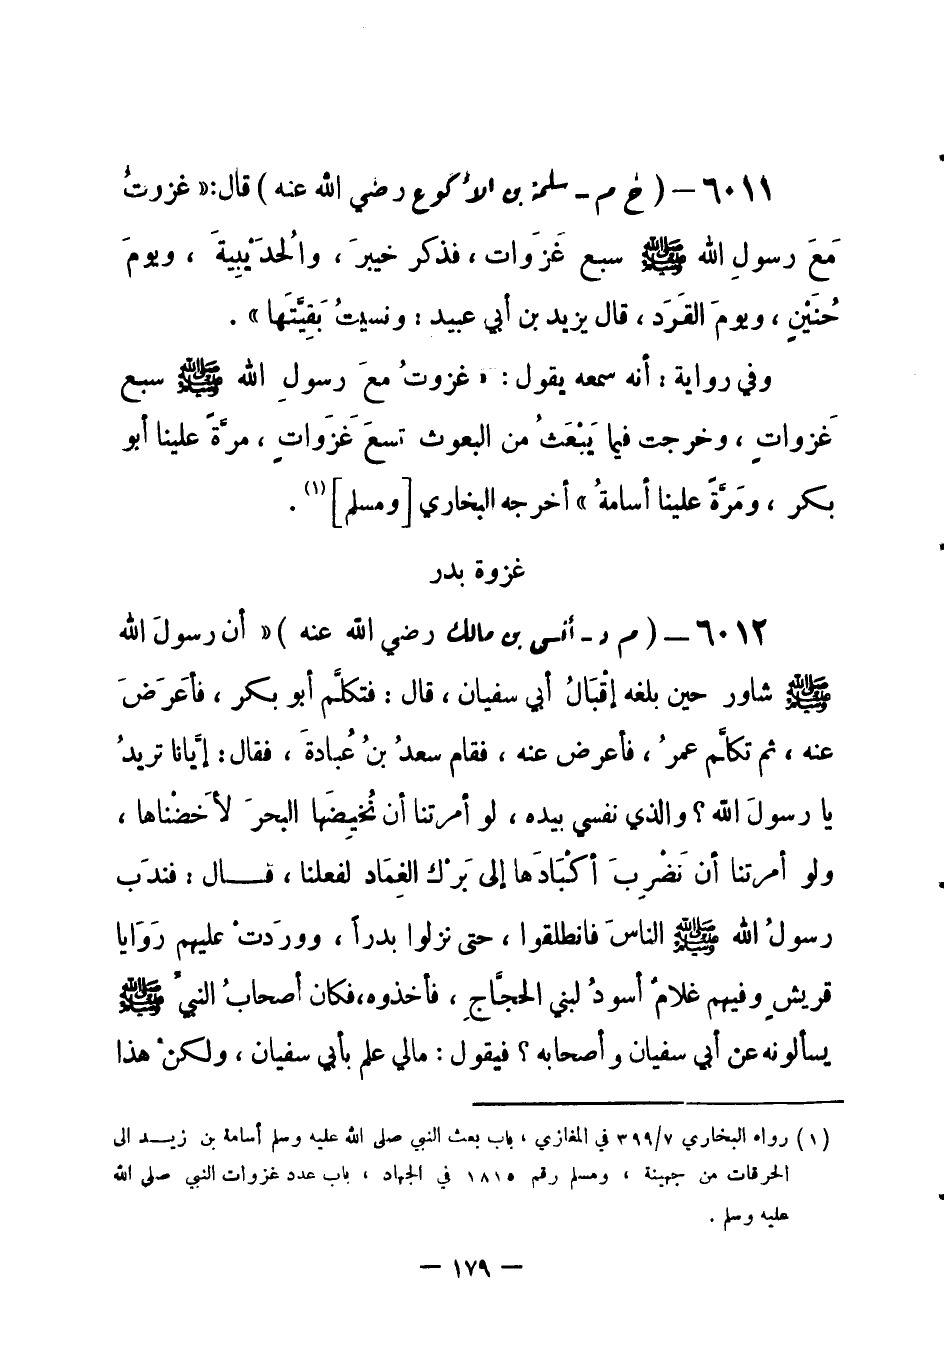 ٦٠١١ – ( خ م - سلمة بن الأكوع رضي الله عنه ) قال: « غزوتُ
مَعَ رسولِ الله ﷺ سبع غَزَوات ، فذكر خيبرَ ، والحُدَيْبِيةَ ، ويومَ
حُنَيْنٍ ، ويومَ القَرَد ، قال يزيد بن أبي عبيد : ونسيتُ بَقِيَّتَها » .
وفي رواية : أنه سمعه يقول : « غزوتُ معَ رسولِ الله ﷺ سبع
غَزواتٍ ، وخرجت فيما يَبْعَثُ من البعوث تسعَ غَزَواتٍ ، مرَّةً علينا أبو
بكر ، ومَرَّةً علينا أسامةُ » أخرجه البخاري [ ومسلم ] (١) .
غزوة بدر
٦٠١٢ – ( م د - أنس بن مالك رضي الله عنه ) « أن رسولَ الله
ﷺ شاور حين بلغه إقْبَالُ أبي سفيان ، قال : فتكلَّم أبو بكر ، فأعرَضَ
عنه ، ثم تكلَّم عمرُ ، فأعرض عنه ، فقام سعدُ بنُ عُبادةَ ، فقال : إيَّانا تريدُ
يا رسولَ الله ؟ والذي نفسي بيده ، لو أمرتنا أن نُخيضَها البحرَ لأخَضْناها ،
ولو أمرتنا أن نَضْرِبَ أكْبَادَها إلى بَرْك الغِمَاد لفعلنا ، قــال : فندَب
رسولُ الله ﷺ الناسَ فانطلقوا ، حتى نزلوا بدراً ، ووردَتْ عليهم رَوَايا
قريشٍ وفيهم غلامٌ أسودُ لبني الحجَّاجِ ، فأخذوه، فكان أصحابُ النبيِّ ﷺ
يسألونه عن أبي سفيان وأصحابه ؟ فيقول : مالي علم بأبي سفيان ، ولكنْ هذا
(١) رواه البخاري ٣٩٩/٧ في المغازي ، باب بعث النبي صلى الله عليه وسلم أسامة بن زيــد الى
الحرقات من جهينة ، ومسلم رقم ١٨١٥ في الجهاد ، باب عدد غزوات النبي صلى الله
عليه وسلم .
– ١٧٩ –